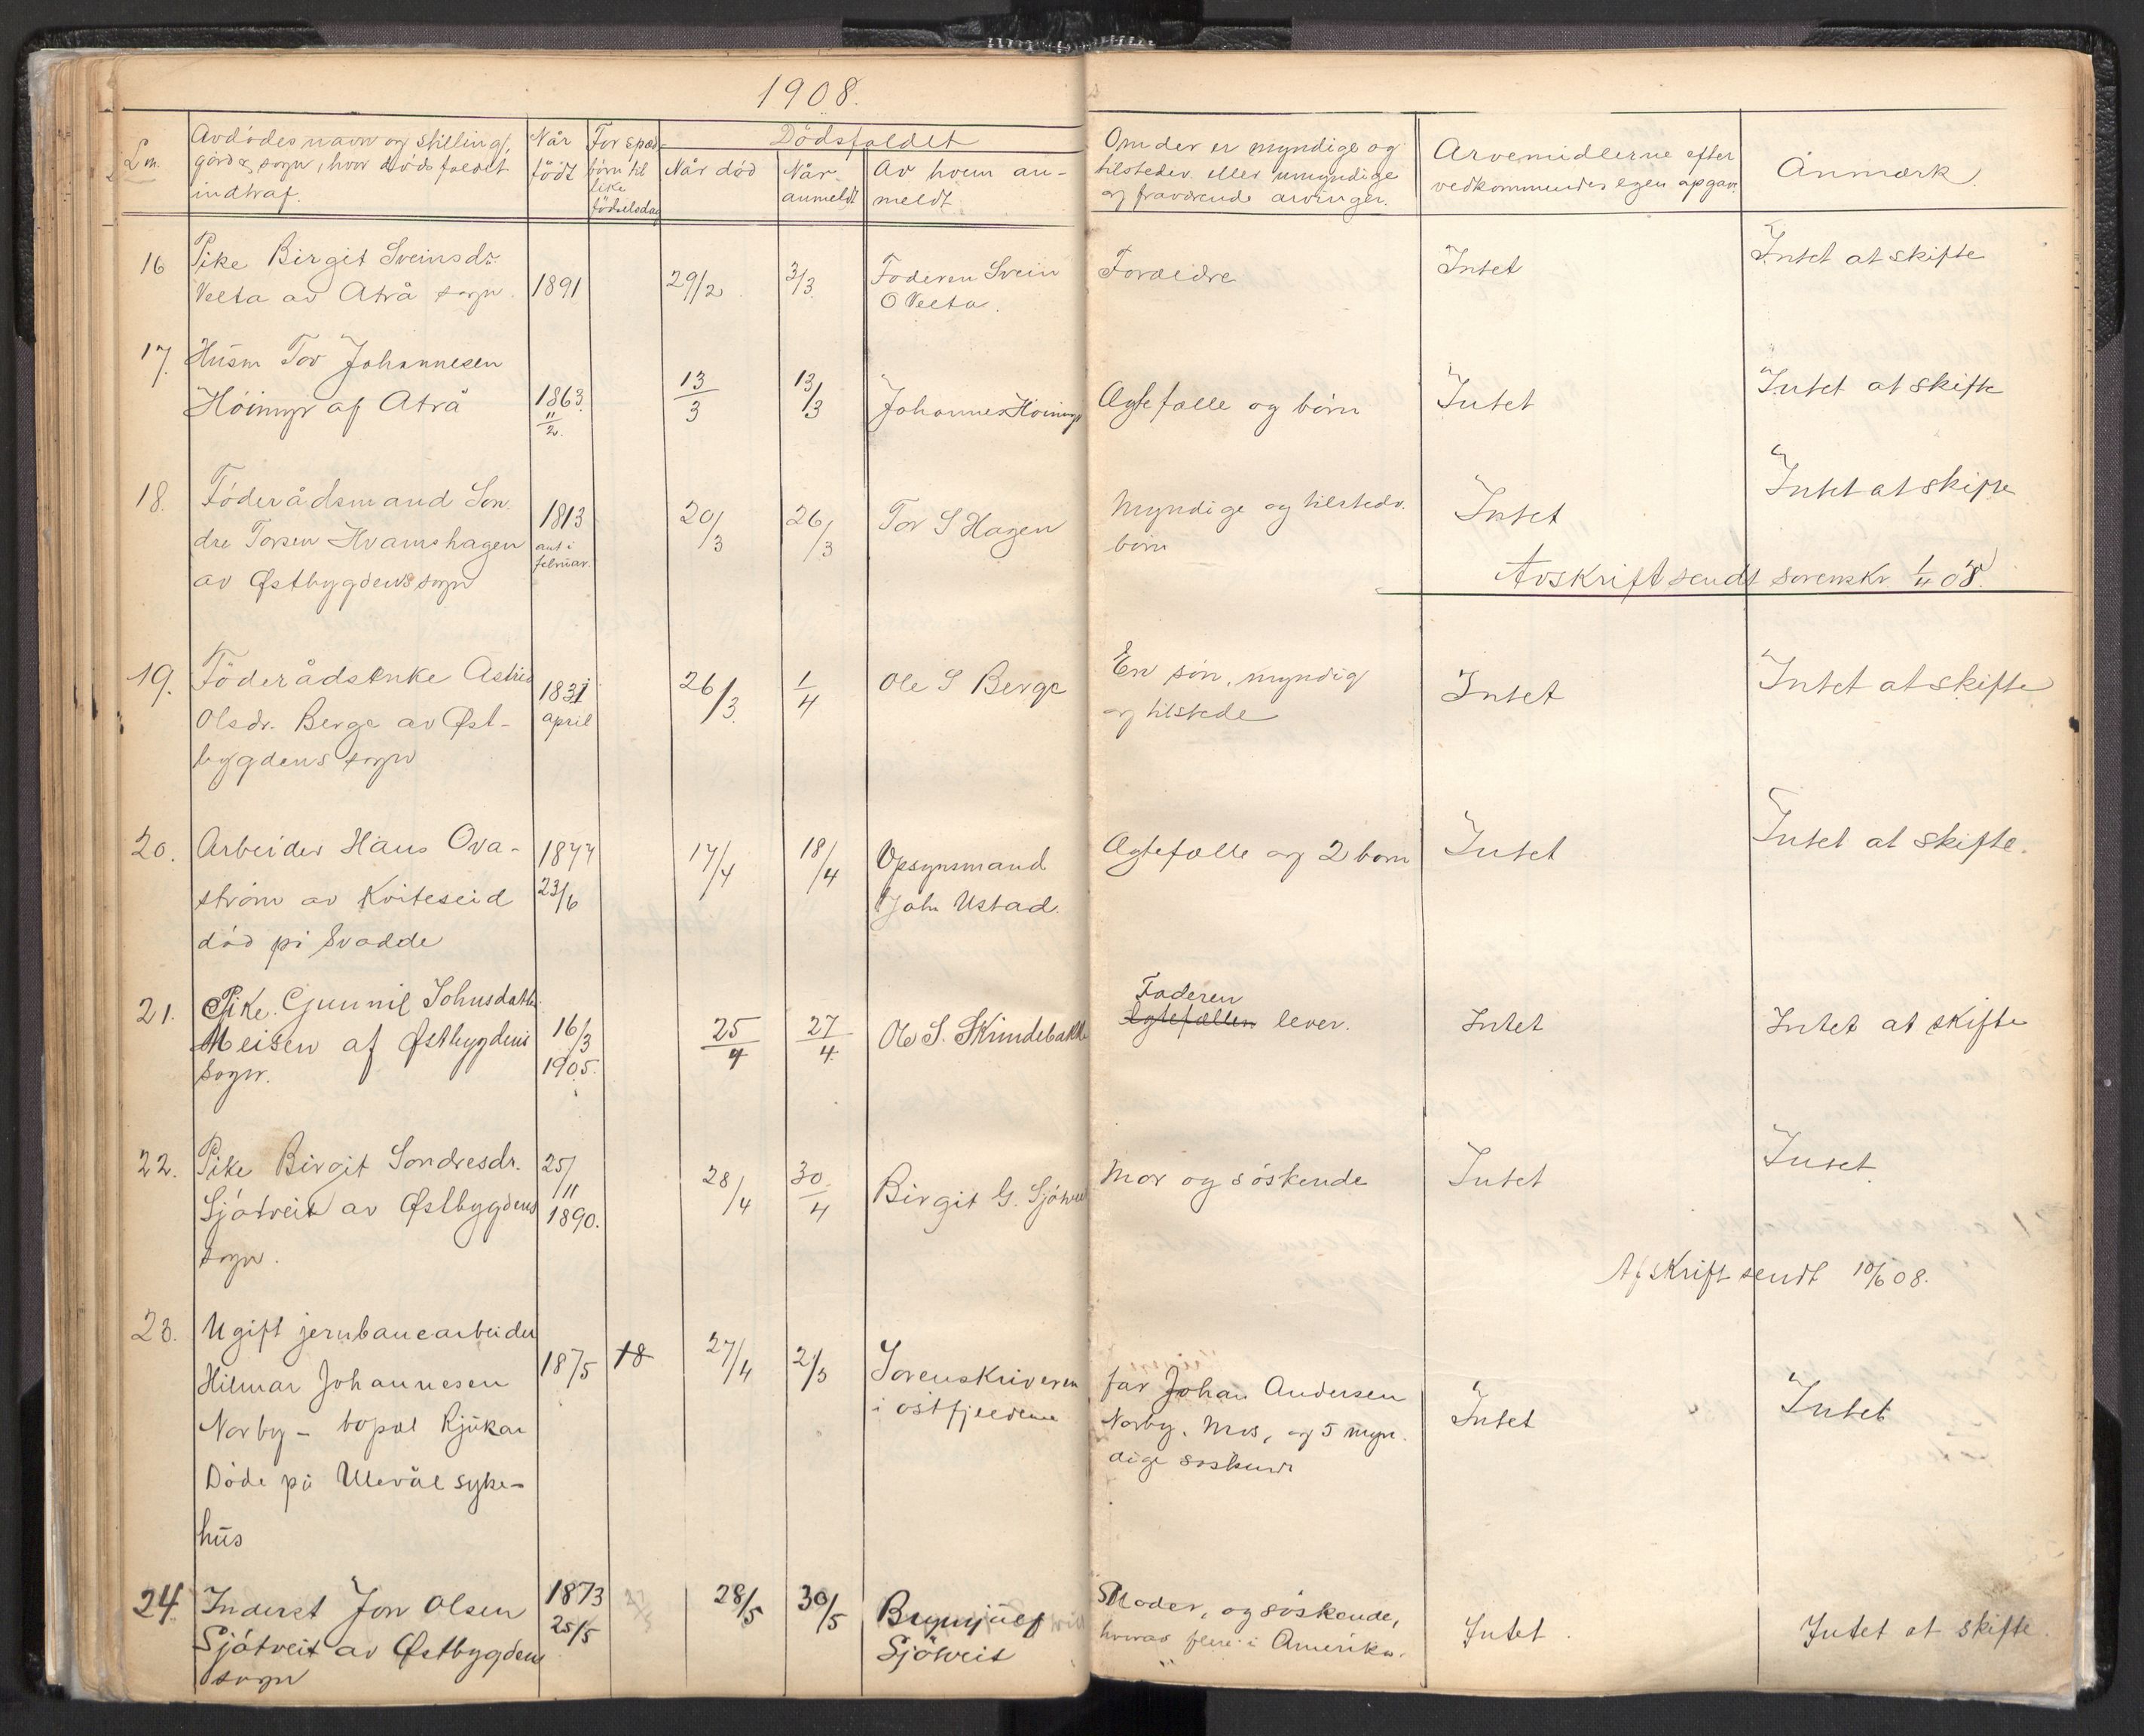 1908.
Lm.
Avdödes navn og stilling,
gård & sogn, hvor dödsfaldet
indtraf.
Når
födt
For spæd-
börn til
like
födselsdag
Dödsfaldet
Når död
Når
anmeldt
Av hvem an-
meldt
Om der er myndige og
tilstedev. eller umyndige
og fraværende arvinger.
Arvemidlerne efter
vedkommendes egen opgav.
Anmærk.
16
Pike Birgit Sveinsdr.
Velta av Atrå sogn.
1891
29/2
3/3.
Foderen Svein
O Velta.
Forældre
Intet
Intet at skifte
17.
Husm Tov Johannesen
Höimyr af Atrå
1863.
11/2.
13/3
13/3
Johannes Höimyr
Ægtefælle og börn
Intet
Intet at skifte
18.
Föderådsmand Son.
dre Torsen Hvamshagen
av Østbygdens sogn
1813
ant i
februar.
20/3
26/3
Tor S Hagen
Myndige og tilstedv.
börn
Intet
Intet at skifte
Avskrift sendt sorenskr 1/4 08.
19.
Föderådsenke Astrid
Olsdr. Berge av Øst-
bygdens sogn
1831
april
26/3.
1/4
Ole S Berge
En sön, myndig
og tilstede
Intet
Intet at skifte
20.
Arbeider Hans Ova-
ström av Kviteseid
död på Svadde
1877
23/6
17/4
18/4
Opsynsmand
Joh Ustad.
Ægtefælle og 2 born
Intet
Intet at skifte.
21.
Pike. Gunnil Johnsdatter
Meisen af Østbygdens
sogn.
16/3
1905.
25/4
27/4.
Ole S. Skindebakke
Faderen
Ægtefællen lever.
Intet
Intet at skifte
22.
Pike Birgit Sondresdr.
Sjötveit av Østbygdens
sogn.
25/11
1890.
28/4
30/4
Birgit G. Sjötveit
Mor og söskende
Intet
Intet
Afskrift sendt 10/6 08.
23.
Ugift jernbanearbeider
Hilmar Johannesen
Norby - bopæl Rjukan
Döde på Ulevål syke-
hus
1875
18
27/4
2/5
Sorenskriveren
i östfjeldene
far Johan Andersen
Norby. Mos, og 5 myn.
dige söskend
Intet
Intet
24.
Inderst Jon Olsen
Sjötveit av Østbygdens
sogn
1873
25/5
28/5
30/5
Brynjulf
Sjötveit
Moder, og söskende,
hvorav flere i Amerika.
Intet.
Intet at skifte.